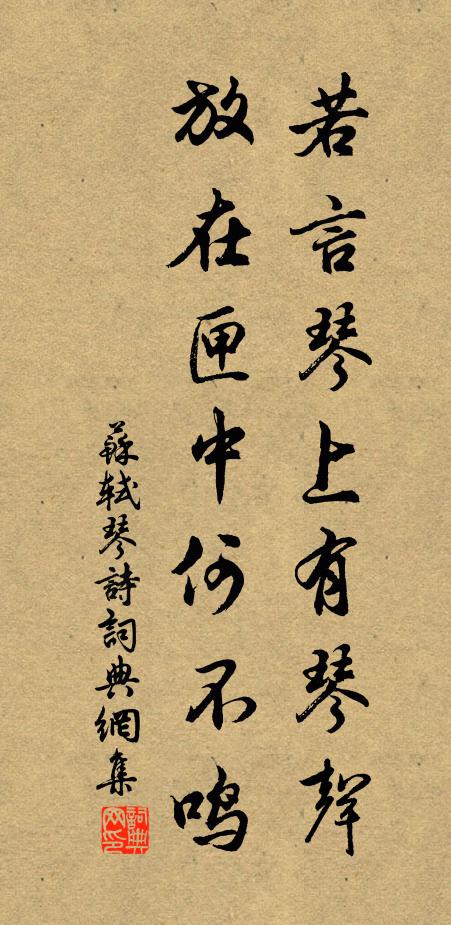 若言琴上有琴聲
放在匣中何不鸣
蘇軾琴詩詞典網集
詞典网印